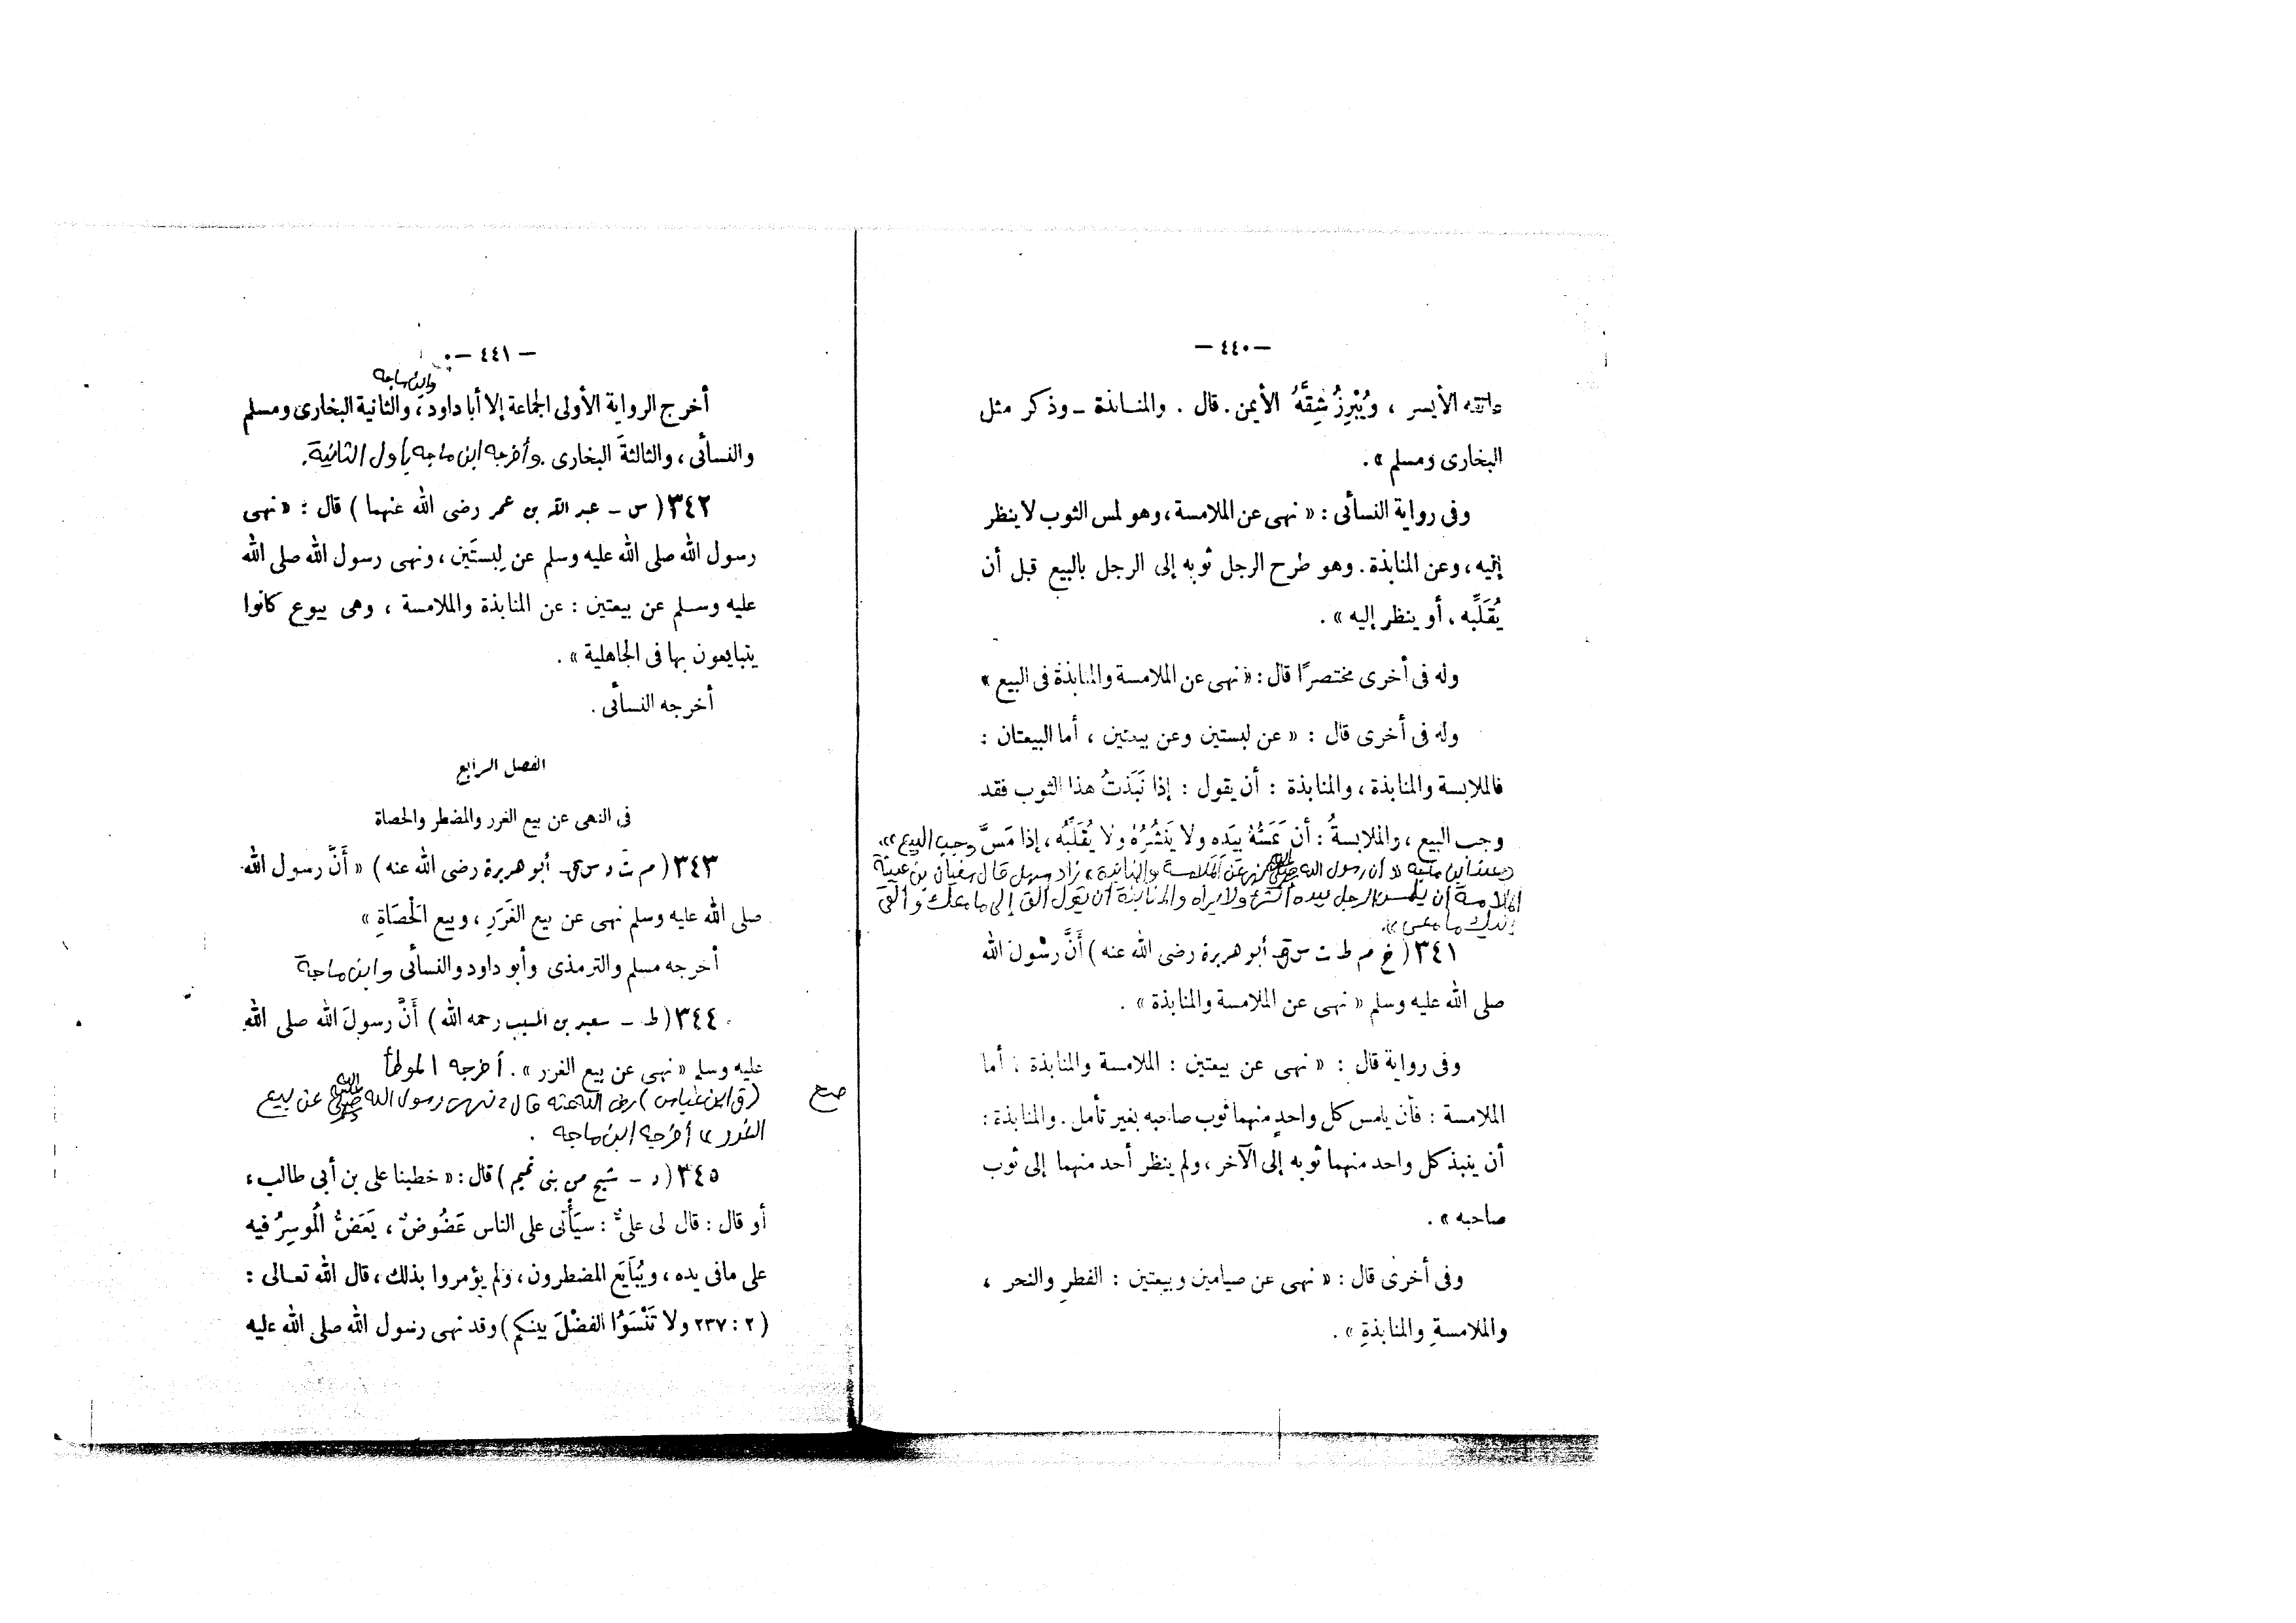 — ٤٤٠ —
عاتقه الأيسر ، ويُبْرِزُ شِقَّهُ الأيمن . قال . والمنابذة ـ وذكر مثل
البخارى ومسلم » .
وفى رواية النسأئى : « نهى عن الملامسة ، وهو لمس الثوب لا ينظر
إليه ، وعن المنابذة . وهو طرح الرجل ثوبه إلى الرجل بالبيع قبل أن
يُقَلِّبه ، أو ينظر إليه » .
وله فى أخرى مختصرًا قال : « نهى عن الملامسة والمنابذة فى البيع »
وله فى أخرى قال : « عن لبستين وعن بيعتين ، أما البيعتان :
فالملابسة والمنابذة ، والمنابذة : أن يقول : إذا نَبَذتُ هذا الثوب فقد
وجب البيع ، والملابسةُ : أن يَمَسَّهُ بيَدِه ولا يَنْشُرُهُ ولا يُقَلِّبُه ، إذا مَسَّ وجب البيع » .
وعند ابن ماجه « أن رسول الله صلى الله عليه وسلم نهى عن الملامسة والمنابذة » زاد سهل قال سفيان بن عيينة
الملامسة أن يلمس الرجل بيده الشئ ولا يراه والمنابذة أن يقول ألق إلى ما معك وألقى
إليك ما معى » .
٣٤١ ( خ م ط ت س ق ـ أبو هريرة رضى الله عنه ) أَنَّ رسُولَ الله
صلى الله عليه وسلم « نهى عن الملامسة والمنابذة » .
وفى رواية قال : « نهى عن بيعتين : الملامسة والمنابذة : أما
الملامسة : فأن يلمس كل واحدٍ منهما ثوب صاحبه بغير تأمل . والمنابذة :
أن ينبذ كل واحد منهما ثوبه إلى الآخر ، ولم ينظر أحد منهما إلى ثوب
صاحبه » .
وفى أخرى قال : « نهى عن صيامين وبيعتين : الفطرِ والنحر ،
والملامسةِ والمنابذةِ » .
— ٤٤١ —
وابن ماجه
أخرج الرواية الأولى الجماعة إلا أبا داود ، والثانية البخارى ومسلم
والنسأئى ، والثالثةَ البخارى . وأخرجه ابن ماجه بأول الثانية .
٣٤٢ ( س ـ عبد الله بن عمر رضى الله عنهما ) قال : « نهى
رسول الله صلى الله عليه وسلم عن لِبستَين ، ونهى رسول الله صلى الله
عليه وسلم عن بيعتين : عن المنابذة والملامسة ، وهى بيوع كانوا
يتبايعون بها فى الجاهلية » .
أخرجه النسأئى .
الفصل الرابع
فى النهى عن بيع الغرر والمضطر والحصاة
٣٤٣ ( م ت د س ق ـ أبو هريرة رضى الله عنه ) « أَنَّ رسول الله
صلى الله عليه وسلم نهى عن بيع الغَرَرِ ، وبيع الحْصَاةِ »
أخرجه مسلم والترمذى وأبو داود والنسأئى وابن ماجة
٣٤٤ ( ط ـ سعيد بن المسيب رحمه الله ) أَنَّ رسولَ الله صلى الله
عليه وسلم « نهى عن بيع الغرر » . أخرجه الموطأ
صح
( ق ابن عباس ) رضى الله عنه قال « نهى رسول الله صلى الله عليه وسلم عن بيع
الغرر » أخرجه ابن ماجه .
٣٤٥ ( د ـ شيخ من بنى تميم ) قال : « خطبنا على بن أبى طالب ،
أو قال : قال لى علىٌّ : سيَأْتى على الناس عَضُوضٌ ، يَعَضُّ الْمُوسِرُ فيه
على مافى يده ، ويُبَايَع المضطرون ، ولم يؤمروا بذلك ، قال الله تعالى :
( ٢ : ٢٣٧ ولا تَنْسَوُا الفضْلَ بينكم ) وقد نهى رسول الله صلى الله عليه